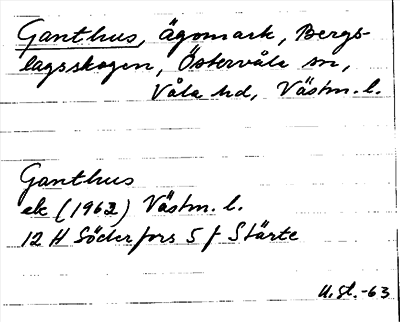 Ganthus, Ägomark, Bergs-
lagsskogen, Östervåla sn,
Våla hd, Västm. l.
Ganthus
ek (1962) Västm. l.
12 H Söderfors 5 f Stärte
U.St.-63